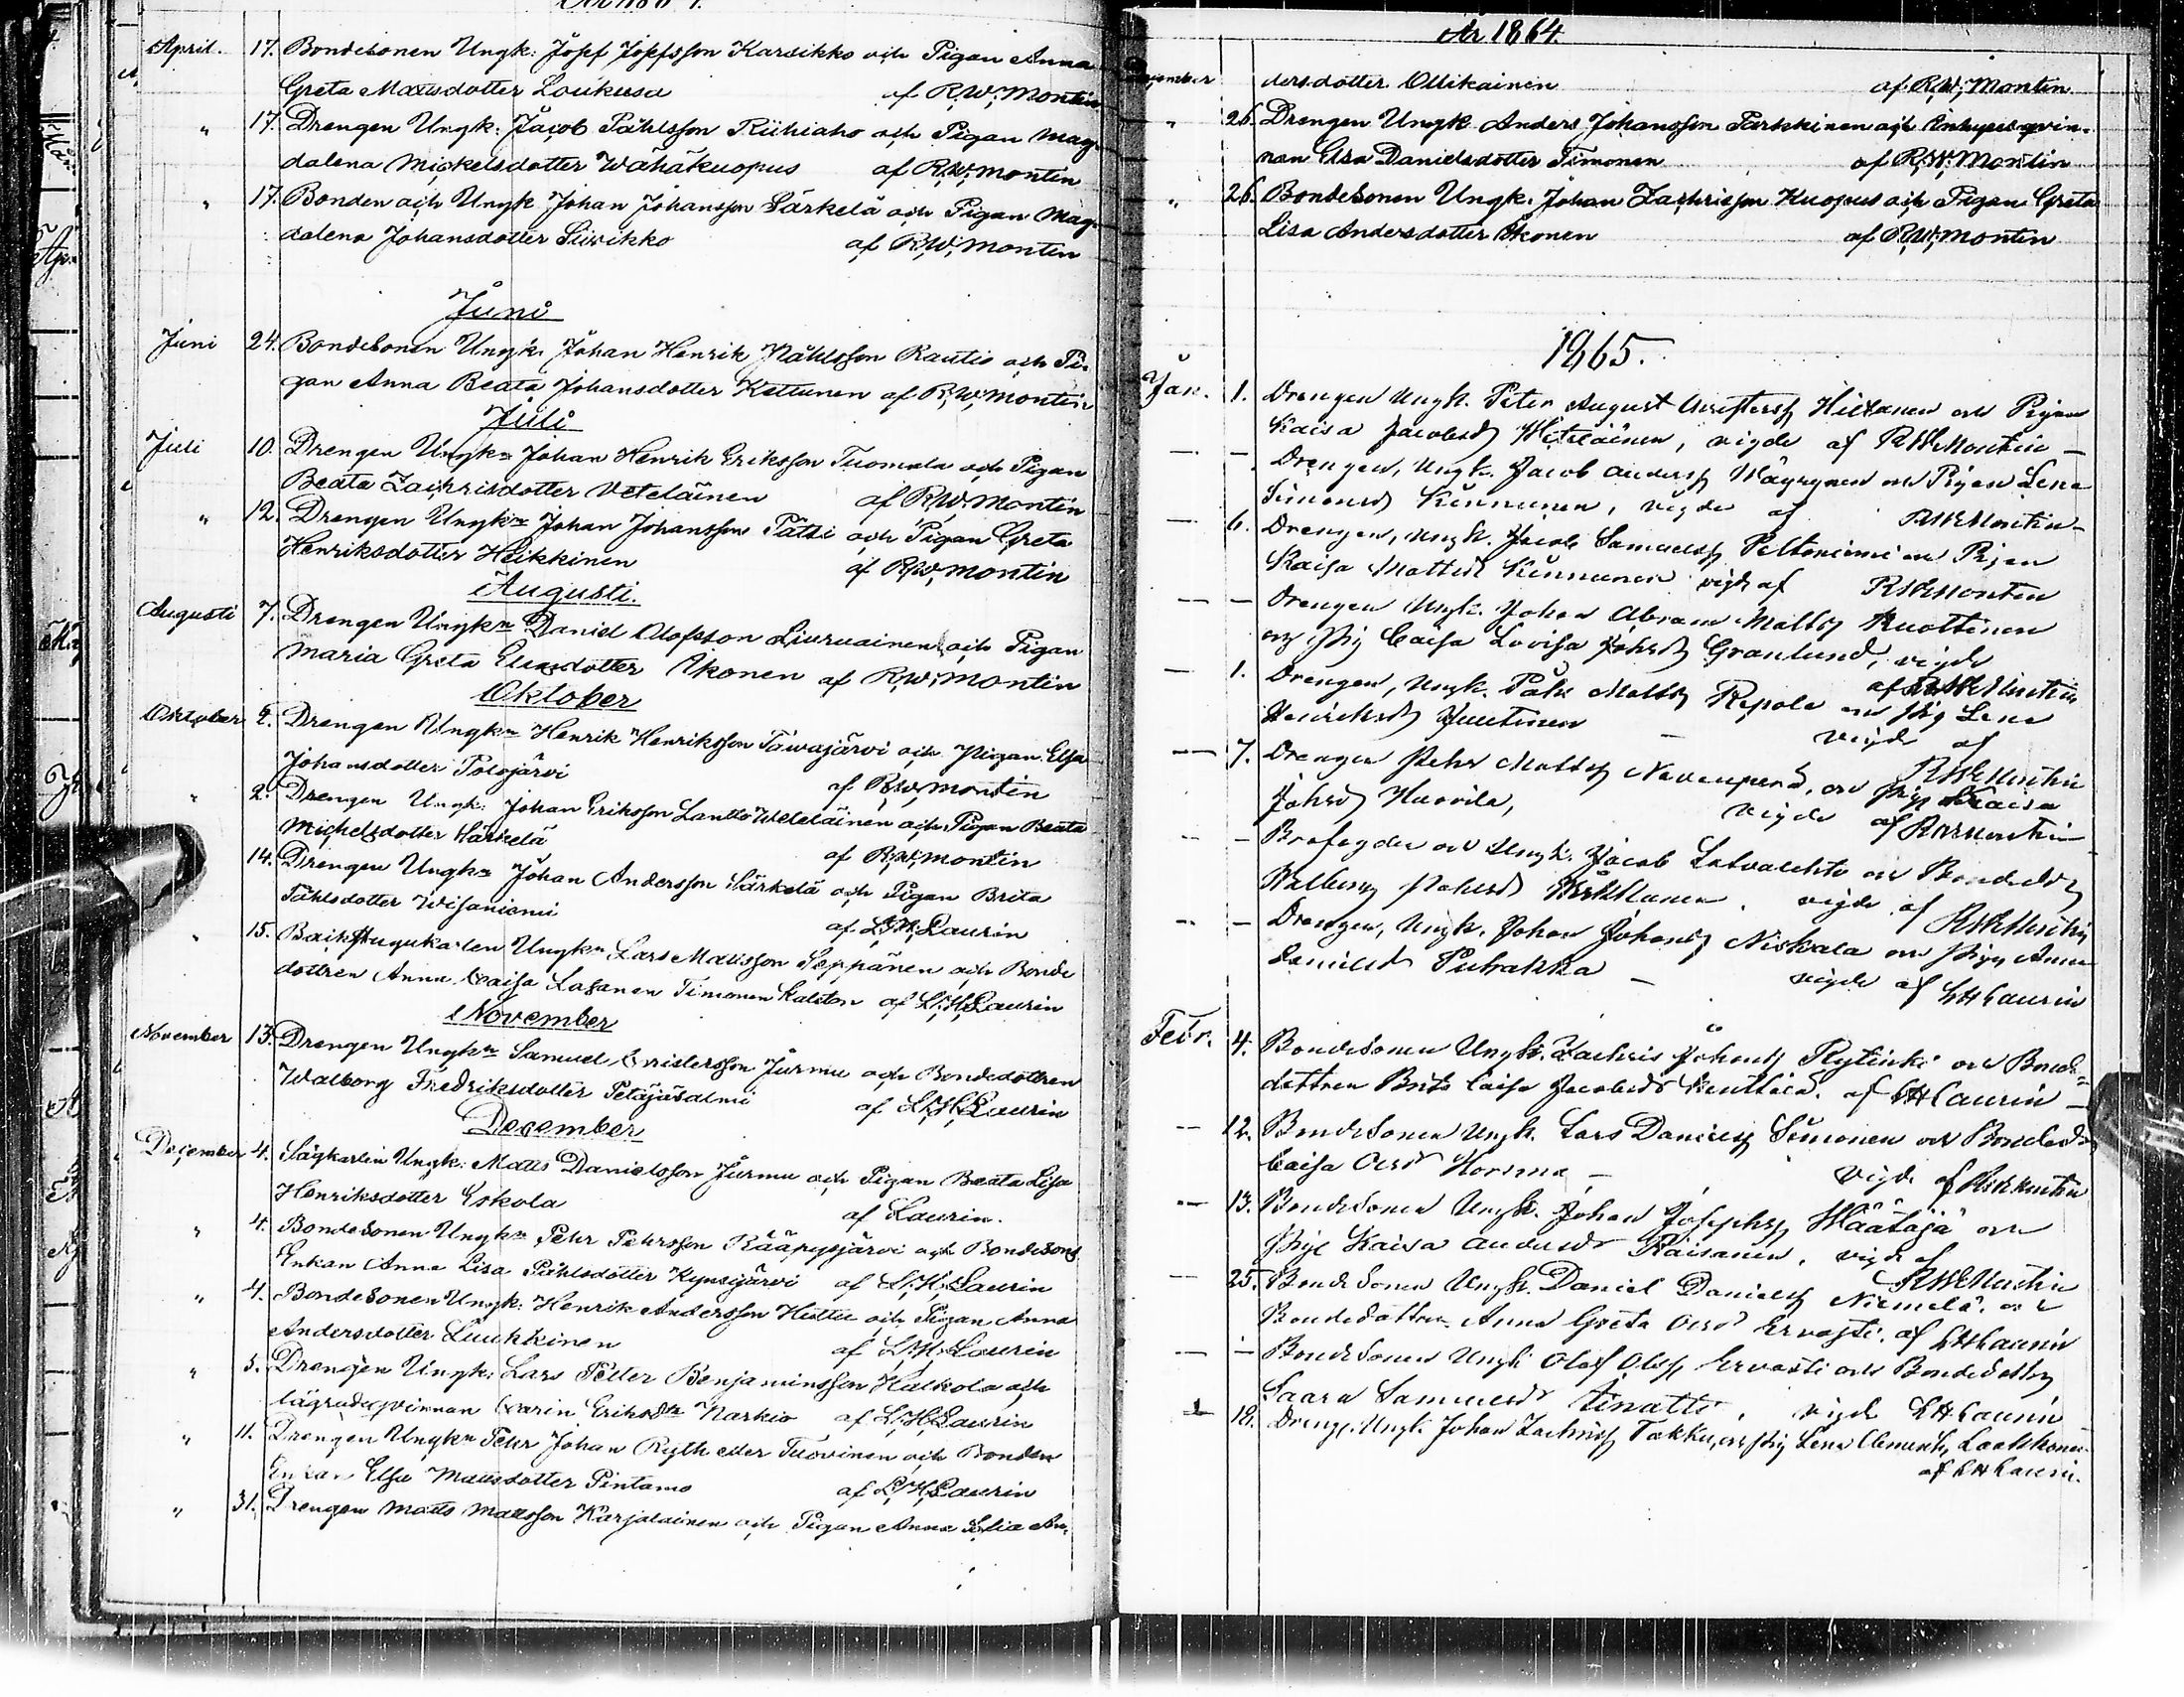 April. 17. Bondesonen Ungk: Josef Josefsson Karsikko och Pigan Anna
Greta Mattsdotter Loukusa af R,W, Montin
" 17. Drengen Ungk: Jacob Påhlsson Riihiaho och Pigan Mag-
dalena Mickelsdotter Wähäkuopus af R,W, Montin
" 17. Bonden och Ungk Johan Johansson Särkelä och Pigan Mag-
dalena Johansdotter Siivikko af R,W, Montin
Juni
Juni 24. Bondesonen Ungk: Johan Henrik Påhlsson Rautio och Pi-
gan Anna Beata Johansdotter Kettunen af R,W, Montin
Juli
Juli 10. Drengen Ungkn Johan Henrik Eriksson Tuomala och Pigan
Beata Zachrisdotter Veteläinen af R,W, Montin
" 12. Drengen Ungkn Johan Johansson Pätsi och Pigan Greta
Henriksdotter Heikkinen af R,W, Montin
Augusti.
Augusti 7. Drengen Ungkn Daniel Olofsson Livruainen och Pigan
Maria Greta Eliasdotter Ikonen af R,W, Montin
Oktober
Oktober 2. Drengen Ungkn Henrik Henriksson Taivajärvi och Pigan Elsa
Johansdotter Polojärvi af R,W, Montin
" 2. Drengen Ungk: Johan Eriksson Lantto Weteläinen och Pigan Beata
Michelsdotter Särkelä af R,W, Montin
14. Drengen Ungkn Johan Andersson Särkelä och Pigan Brita
Påhlsdotter Wisaniemi af L,H, Laurin
" 15. Ungkn Lars Mattsson Seppänen och Bonde
dottren Anna Caisa Lasanen Timonen af L,H, Laurin
November
November 13. Drengen Ungkn Samuel Cristersson Jurmu och Bondedottren
Walborg Fredriksdotter Petäjäsalmi af L,H, Laurin
December
December 4. Sågkarlen Ungk: Matts Danielsson Jurmu och Pigan Beata Lisa
Henriksdotter Eskola af Laurin.
" 4. Bondesonen Ungkn Pehr Pehrsson Rääpysjärvi och Bondesons
Enkan Anna Lisa Påhlsdotter Kynsijärvi af L,H, Laurin
" 4. Bondesonen Ungk: Henrik Andersson Huttu och Pigan Anna
Andersdotter Luukkinen af L,H, Laurin
" 5. Drengen Ungk: Lars Petter Benjaminsson Halkola och
lägradeqvinnan Carin Eriksdtr Narkio af L,H, Laurin
" 11. Drengen Ungkn Pehr Johan Ryth eller Tuovinen och Bonden
Enkan Elsa Mattsdotter Pintamo af L,H, Laurin
" 31. Drengen Matts Mattsson Karjalainen och Pigan Anna Sofia An-
År 1864.
December dersdotter Ollikainen af R,W, Montin
" 26. Drengen Ungk Anders Johansson Parkkinen och Inhysesqvin-
nan Elsa Danielsdotter Timonen af R,W, Montin
" 26. Bondesonen Ungk. Johan Zachrisson Kuopus och Pigan Greta
Lisa Andersdotter Ikonen af R,W, Montin
1865.
Jan. 1. Drengen Ungk. Peter August Hiltanen och Pigan
Kaisa Jacobsd Weteläinen, vigde af RWMontin —
— — Drengen, Ungk. Jacob Anderss Wäyrynen och Pigan Lena
Simonsd Kinnunen, vigde af RWMontin —
— 6. Drengen, Ungk. Jacob Samuelss Peltoniemi och Pigan
Kaisa Mattsd Kinnunen vigde af RWMontin
— — Drengen Ungk. Johan Abram Matts Ruottinen
och Pig Caisa Lovisa Johsd Granlund, vigde
af RWMontin
— 1. Drengen, Ungk. Påhl Matts Repola och Pig Lena
Henriksd Juutinen — vigde af
RWMontin
— 7. Drengen Pehr Matts Nevanperä, och Pig Kaisa
Johsd Huovila, vigde af RWMontin
— — och Ungk. Jacob Latvalehto och Bondedottr
Walborg Påhlsd vigde af RWMontin
— — Drengen, Ungk. Johan Johanss Niskala och Pigan Anna
Danielsd Puhakka — vigde af LHLaurin
Febr. 4. Bondesonen Ungk. Zachris Johanss Rytinki och Bonde-
dottren Brita Caisa Jacobsd af LHLaurin —
— 12. Bondesonen Ungk. Lars Danielss Simonen och Bondedr
Caisa Horsma — vigde af RWMontin
— 13. Bondesonen Ungk. Johan Josephss Määttäjä och
Pige Kaisa Andersd Räisänen, vigde af
RWMontin
— 25. Bondesonen Ungk. Daniel Daniels Niemelä, och
Bondedottren Anna Greta Ervasti. af LHLaurin
— — Bondesonen Ungk Olof Olss Ervasti och Bondedottr
Saara Samuelsd Tinatti, vigde LHLaurin
18. Dreng. Ungk. Johan Zachriss Takku, och Pig Lena Clements Laakkonen
af LHLaurin.